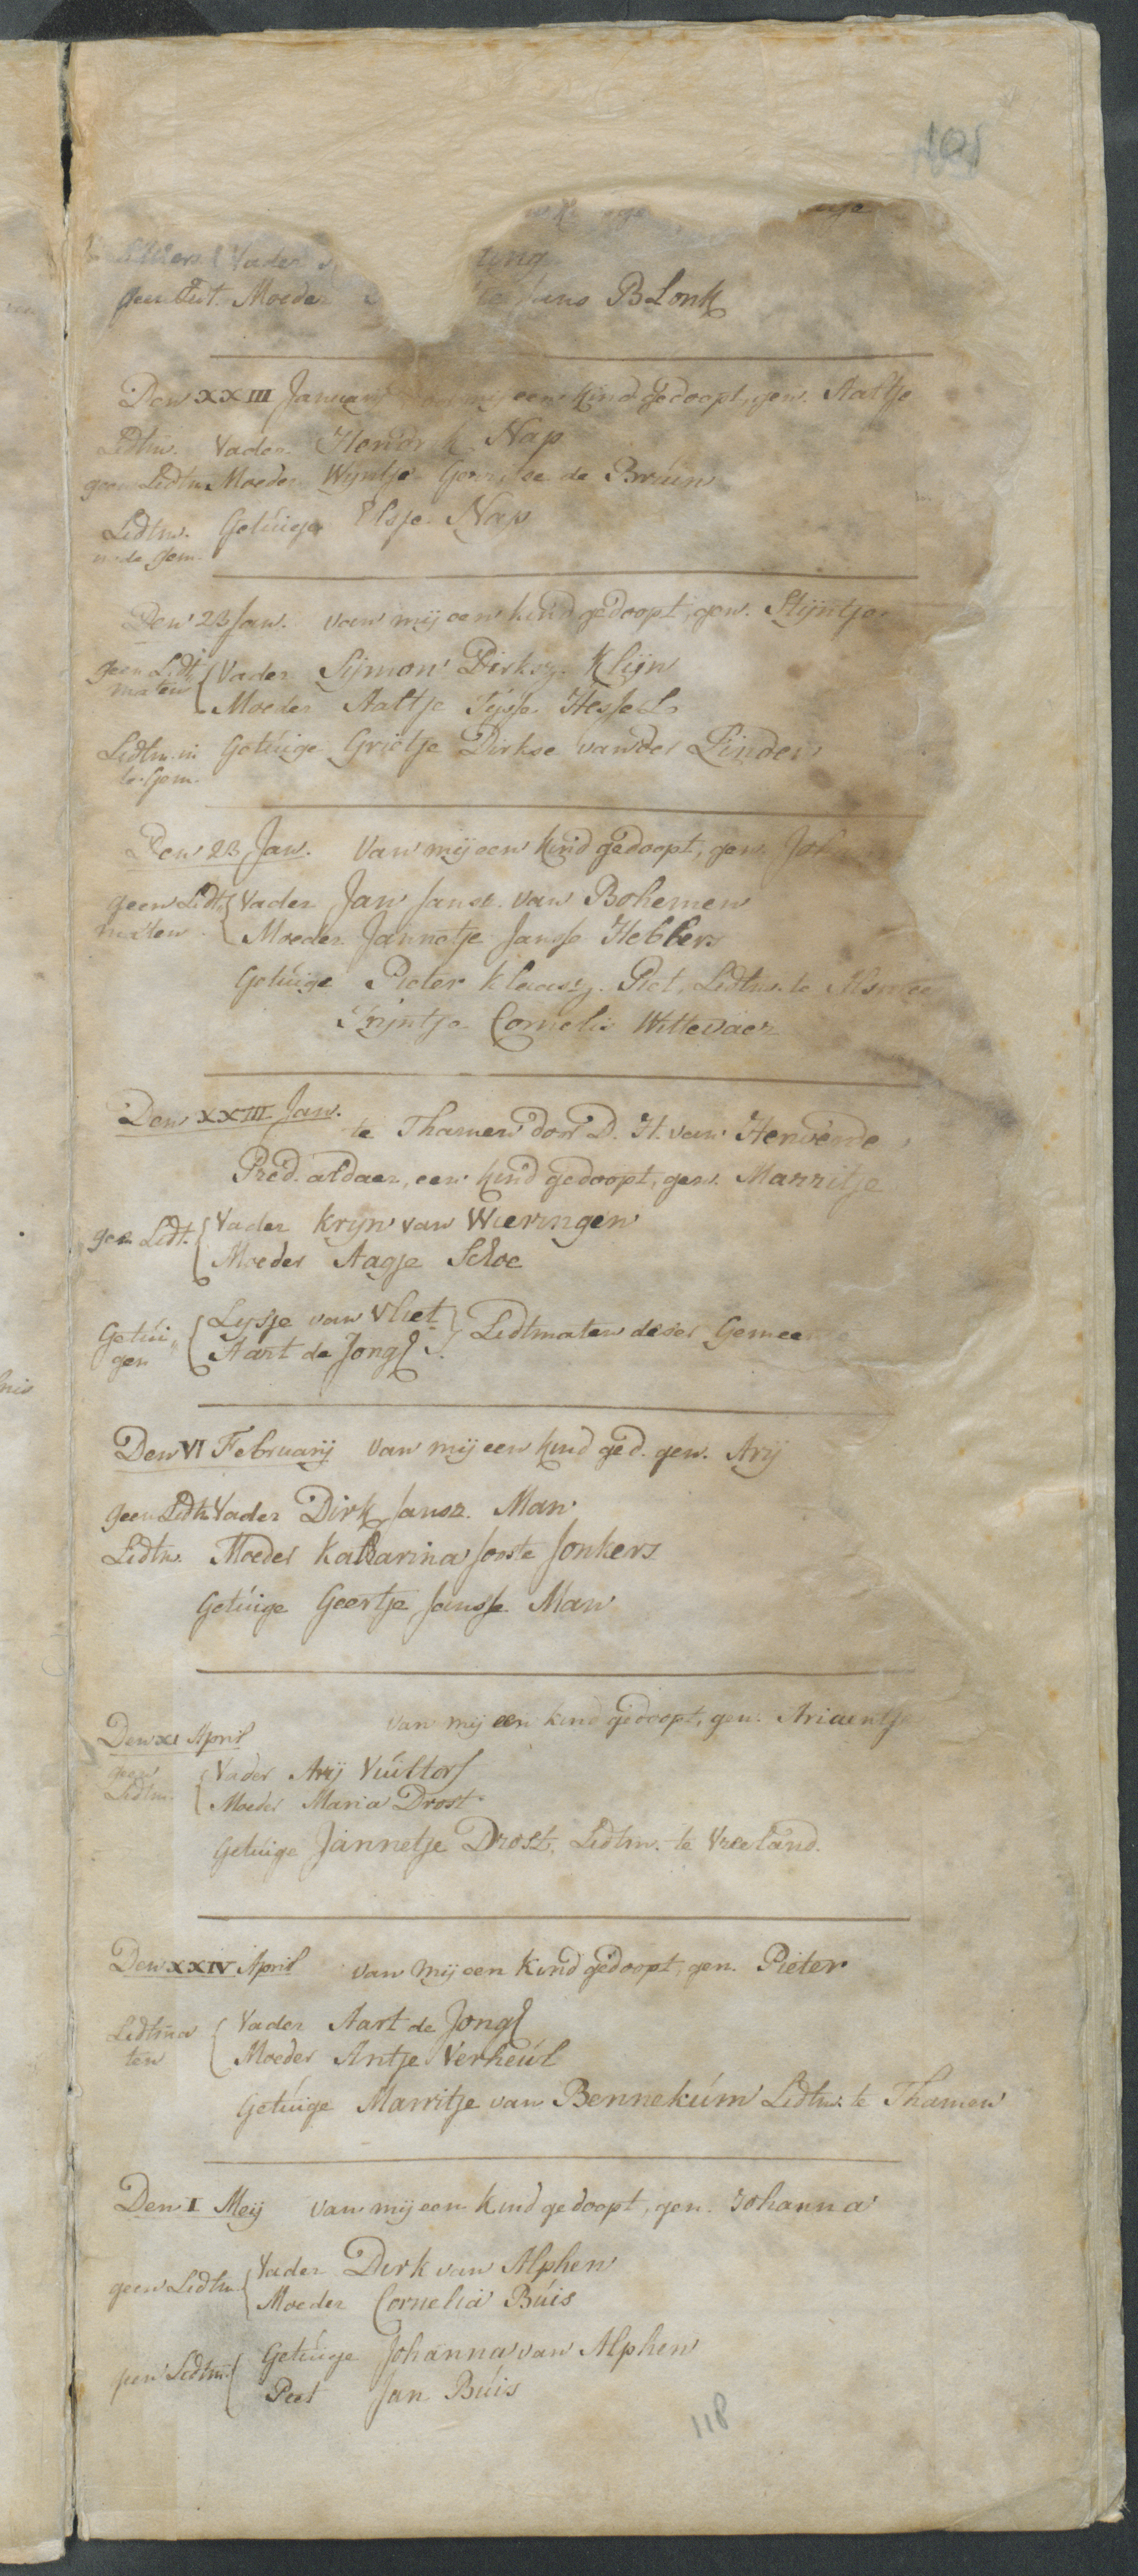 101
Vader
Moeder Blonk
Den XXIII Januarij mij een kind gedoopt, gen. Aaltje
Lidtm. Vader Hendrik Nap
geen Lidtm. Moeder Wijntje de Bruin
Lidtm. Getuige Elsje Nap
Den 23 Jan. van mij een kind gedoopt, gen. Stijntje
geen Lidt
maten
Vader Sijmon Dirksz. Klijn
Moeder Aaltje Hessels
Lidtm. Getuige Grietje Dirkse vander Linden
Den 23 Jan. van mij een kind gedoopt, gen.
geen Lidt
maten
Vader Jan Janse van Bohemen
Moeder Jannetje Janse Hebbers
Getuige Pieter Klaasz. Piet, Lidtm. te
Trijntje Cornelis Wittevaer
Den XXIII Jan.
te Thamen door D. H. van
Pred. aldaer, een kind gedoopt, gen. Marritje
geen Lidt.
Vader Krijn van Wieringen
Moeder Aagje Schoe
Getui
gen
Lijsje van Vliet
Aart de Jong
Lidtmaten deser Gemee
Den VI Februarij van mij een kind ged. gen. Arij
geen Lidtm. Vader Dirk Jansz. Man
Lidtm. Moeder Katharina Jooste Jonkers
Getuige Geertje Janse Man
Den XI April van mij een kind gedoopt, gen. Ariaentje
geen
Lidtm.
Vader Arij
Moeder Maria Drost
Getuige Jannetje Drost, Lidtm. te Vreeland.
Den XXIV April van mij een kind gedoopt, gen. Pieter
Lidtma
ten
Vader Aart de Jong
Moeder Antje Verheul
Getuige Marritje van Bennekum Lidtm. te Thamen
Den I Meij van mij een kind gedoopt, gen. Johanna
geen Lidtm.
Vader Dirk van Alphen
Moeder Cornelia Buis
geen Lidtm.
Getuige Johanna van Alphen
Peet Jan Buis
118